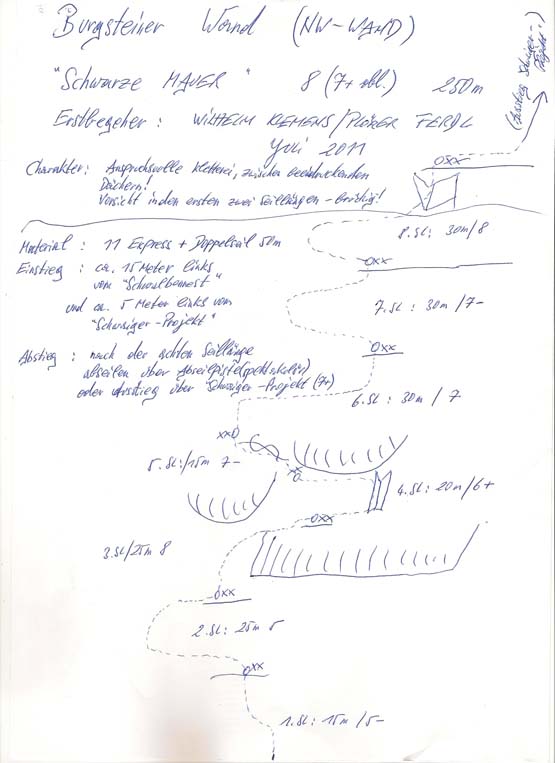 Burgsteiner Wand (NW-WAND)
"Schwarze MAUER" 8 (7+ obl.) 250m
Erstbegeher: WILHELM KLEMENS/PLÖRER FERDL
Juli 2011
(Ausstieg Schwiger-Projekt!)
Charakter: Anspruchsvolle Kletterei, zwischen beeindruckenden
Dächern!
Vorsicht in den ersten zwei Seillängen - brüchig!
OXX
8.SL: 30m/8
Material: 11 Express + Doppelseil 50m
OXX
Einstieg: ca. 15 Meter links
vom "Schwalbennest"
und ca. 5 Meter links vom
"Schwiger-Projekt"
7.SL: 30m/7-
OXX
Abstieg: nach der achten Seillänge
abseilen über Abseilpiste (spektakulär)
oder Ausstieg über Schwiger-Projekt (7+)
6.SL: 30m/7
XXO
5.SL:/15m 7-
4.SL: 20m/6+
OXX
3.SL/25m 8
OXX
2.SL: 25m 5
OXX
1.SL: 15m/5-